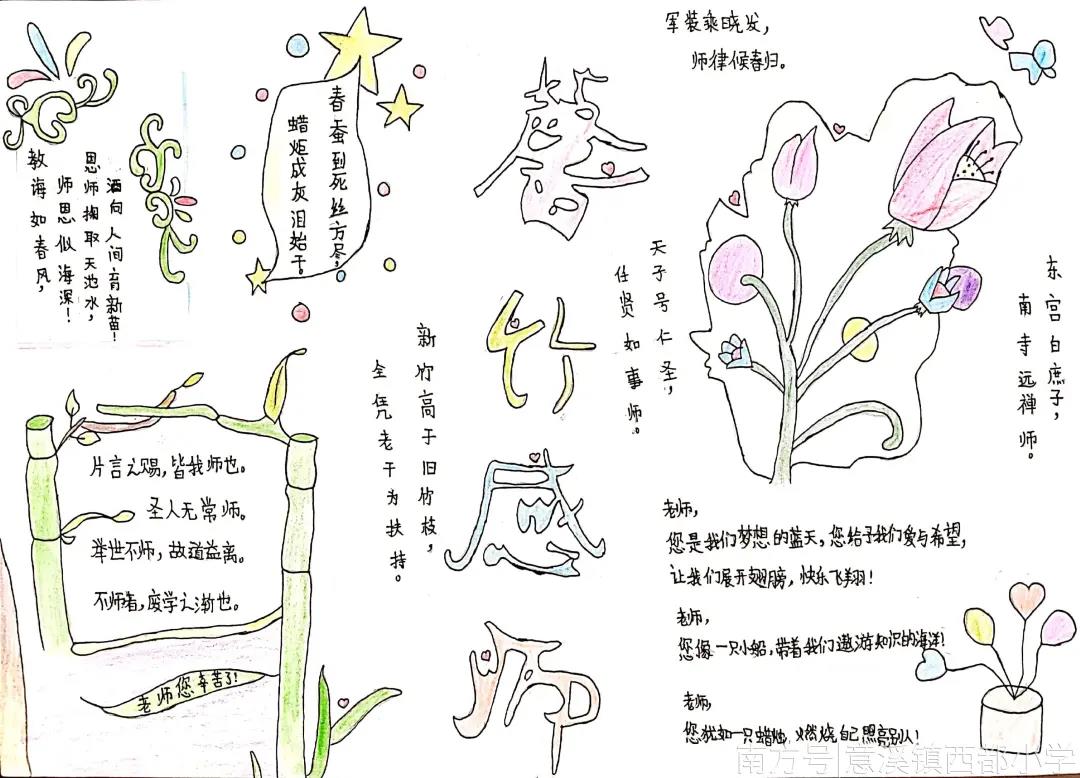 教诲如春风，
师恩似海深！
恩师掬取天池水，
洒向人间育新苗！
春蚕到死丝方尽，
蜡炬成灰泪始干。
竹
感
师
军装乘晓发，
师律候春归。
天子号仁圣，
任贤如事师。
东宫白庶子，
南寺远禅师。
新竹高于旧竹枝，
全凭老干为扶持。
片言之赐，皆我师也。
圣人无常师。
举世不师，故道益离。
不师者，废学之渐也。
老师您辛苦了！
老师，
您是我们梦想的蓝天，您给予我们爱与希望，
让我们展开翅膀，快乐飞翔！
老师，
您像一只小船，带着我们遨游知识的海洋！
老师，
您犹如一只蜡烛，燃烧自己照亮别人！
南方号|意溪镇西都小学